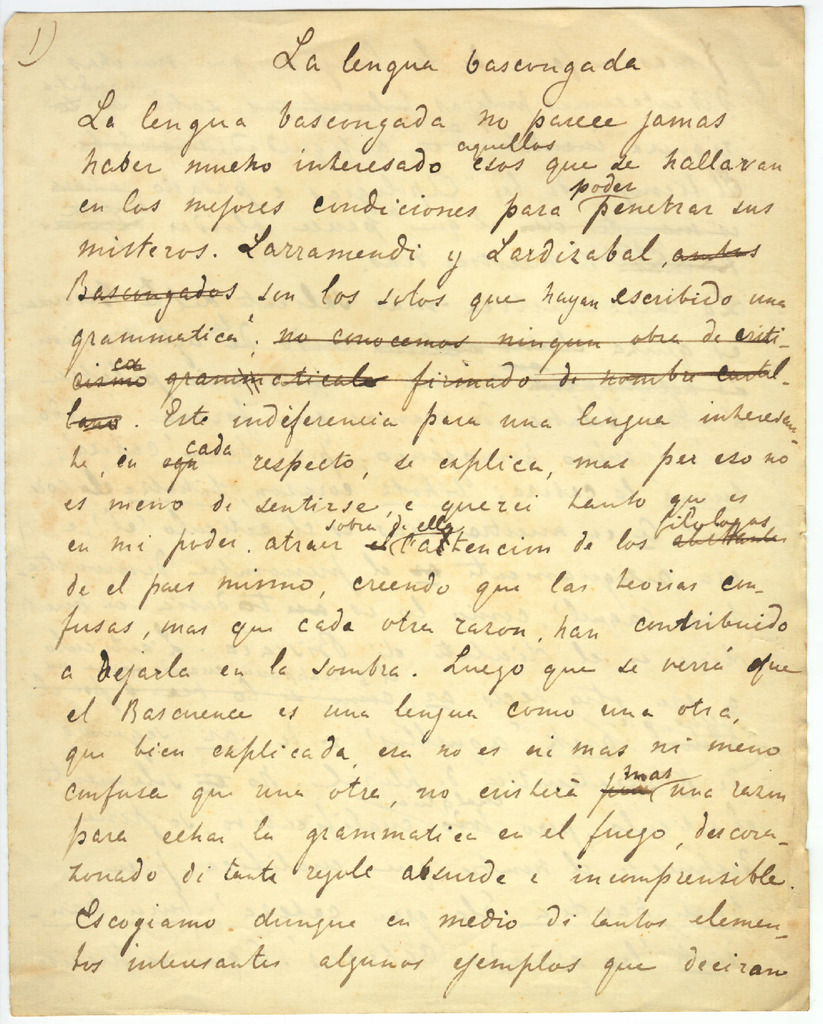 1)
La lengua bascongada
La lengua bascongada no parece jamas
haber mucho interesado aquellos esos que se hallavan
en los mejores condiciones para poder penetrar sus
misteros. Larramendi y Lardizabal, antes
Bascongados son los solos que hayan escribido una
grammatica. no conocemos ningun obra de criti-
cismo ca grammaticale firmado de nombre castel-
lano. Este indiferencia para una lengua interesan-
te, en cada respecto, se explica, mas per eso no
es meno de sentirse, e querei tanto que es
en mi poder. atraer sobra de ella el l'attencion de los filologos
de el paes mismo, creendo que las teorias con-
fusas, mas que cada otra razon, han contribuido
a dejarla en la sombra. Luego que se verrá que
el Bascuence es una lengua como una otra,
que bien explicada, era no es ni mas ni meno
confusa que una otra, no existerà mas una razon
para echar la grammatica en el fuego, descora-
zonado di tante regole absurde e incomprensible.
Escogiamo dunque en medio di tantos elemen-
tos interesantes algunos ejemplos que deciran